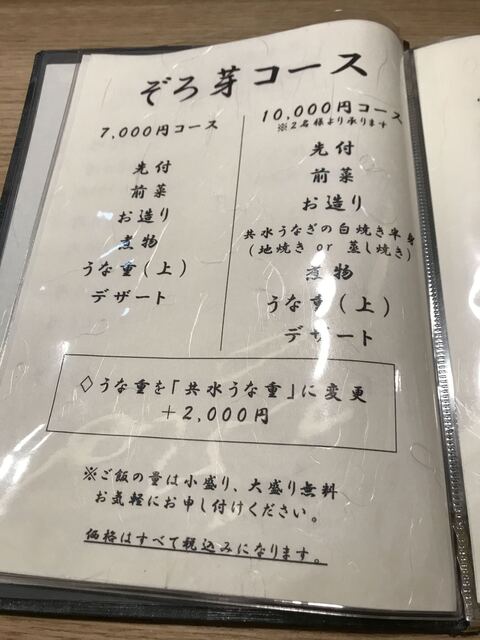 ぞろ芽コース
7,000円コース
先付
前菜
お造り
煮物
うな重(上)
デザート
10,000円コース
※2名様より承ります
先付
前菜
お造り
共水うなぎの白焼き半身
(地焼き or 蒸し焼き)
煮物
うな重(上)
デザート
◇うな重を「共水うな重」に変更
+2,000円
※ご飯の量は小盛り、大盛り無料
お気軽にお申し付けください。
価格はすべて税込みになります。